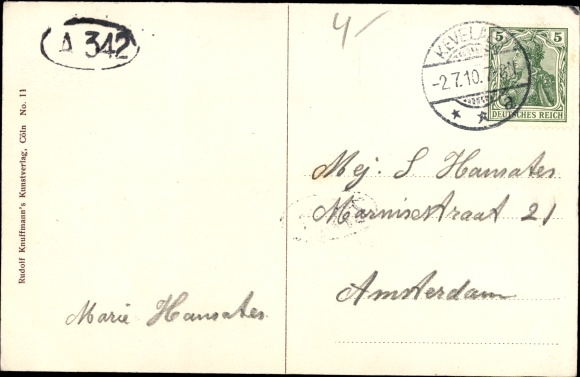 A 342
Rudolf Knuffmann's Kunstverlag, Cöln No. 11
Marie Hansates.
4
KEVELAER
-2.7.10.7-8
a
5 5
DEUTSCHES REICH
Mej. S Hansates
Marnixstraat 21
Amsterdam